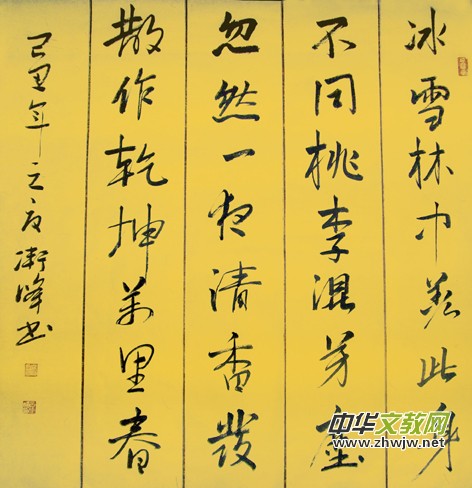 冰雪林中着此身
不同桃李混芳塵
忽然一夜清香發
散作乾坤萬里春
己丑年之夏衛峰书
中华文教网
www.zhwjw.net